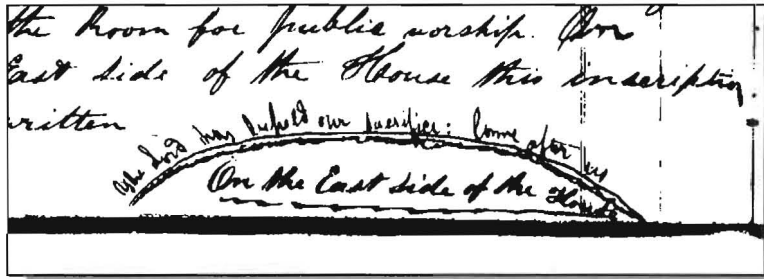 the Room for public worship. On
East side of the House this inscription
written
The Lord has beheld our sacrifice: Come after us
On the East side of the House